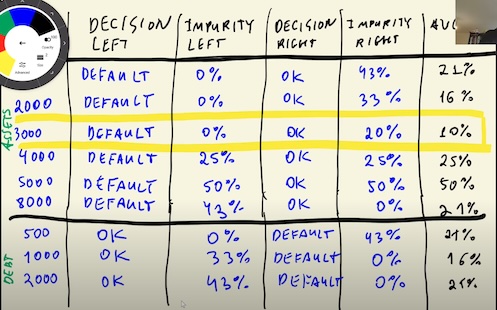 DECISION LEFT IMPURITY LEFT DECISION RIGHT IMPURITY RIGHT
DEFAULT 0% OK 43% 21%
2000 DEFAULT 0% OK 33% 16%
3000 DEFAULT 0% OK 20% 10%
4000 DEFAULT 25% OK 25% 25%
5000 DEFAULT 50% OK 50% 50%
8000 DEFAULT 43% OK 0% 21%
ASSETS
500 OK 0% DEFAULT 43% 21%
1000 OK 33% DEFAULT 0% 16%
2000 OK 43% DEFAULT 0% 21%
DEBT